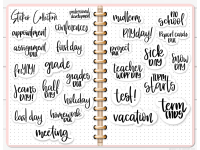 Sticker Collection
professional
development
conferences
appointment
assignment
due
first day
grade
friday!
grades
due
jeans
day!
half
day!
holiday
last day
homework
due
meeting
midterm
no
school
payday!
report cards
due
project
due
sick
day
snow
day!
teacher
work day
test!
starts
vacation
term
ends